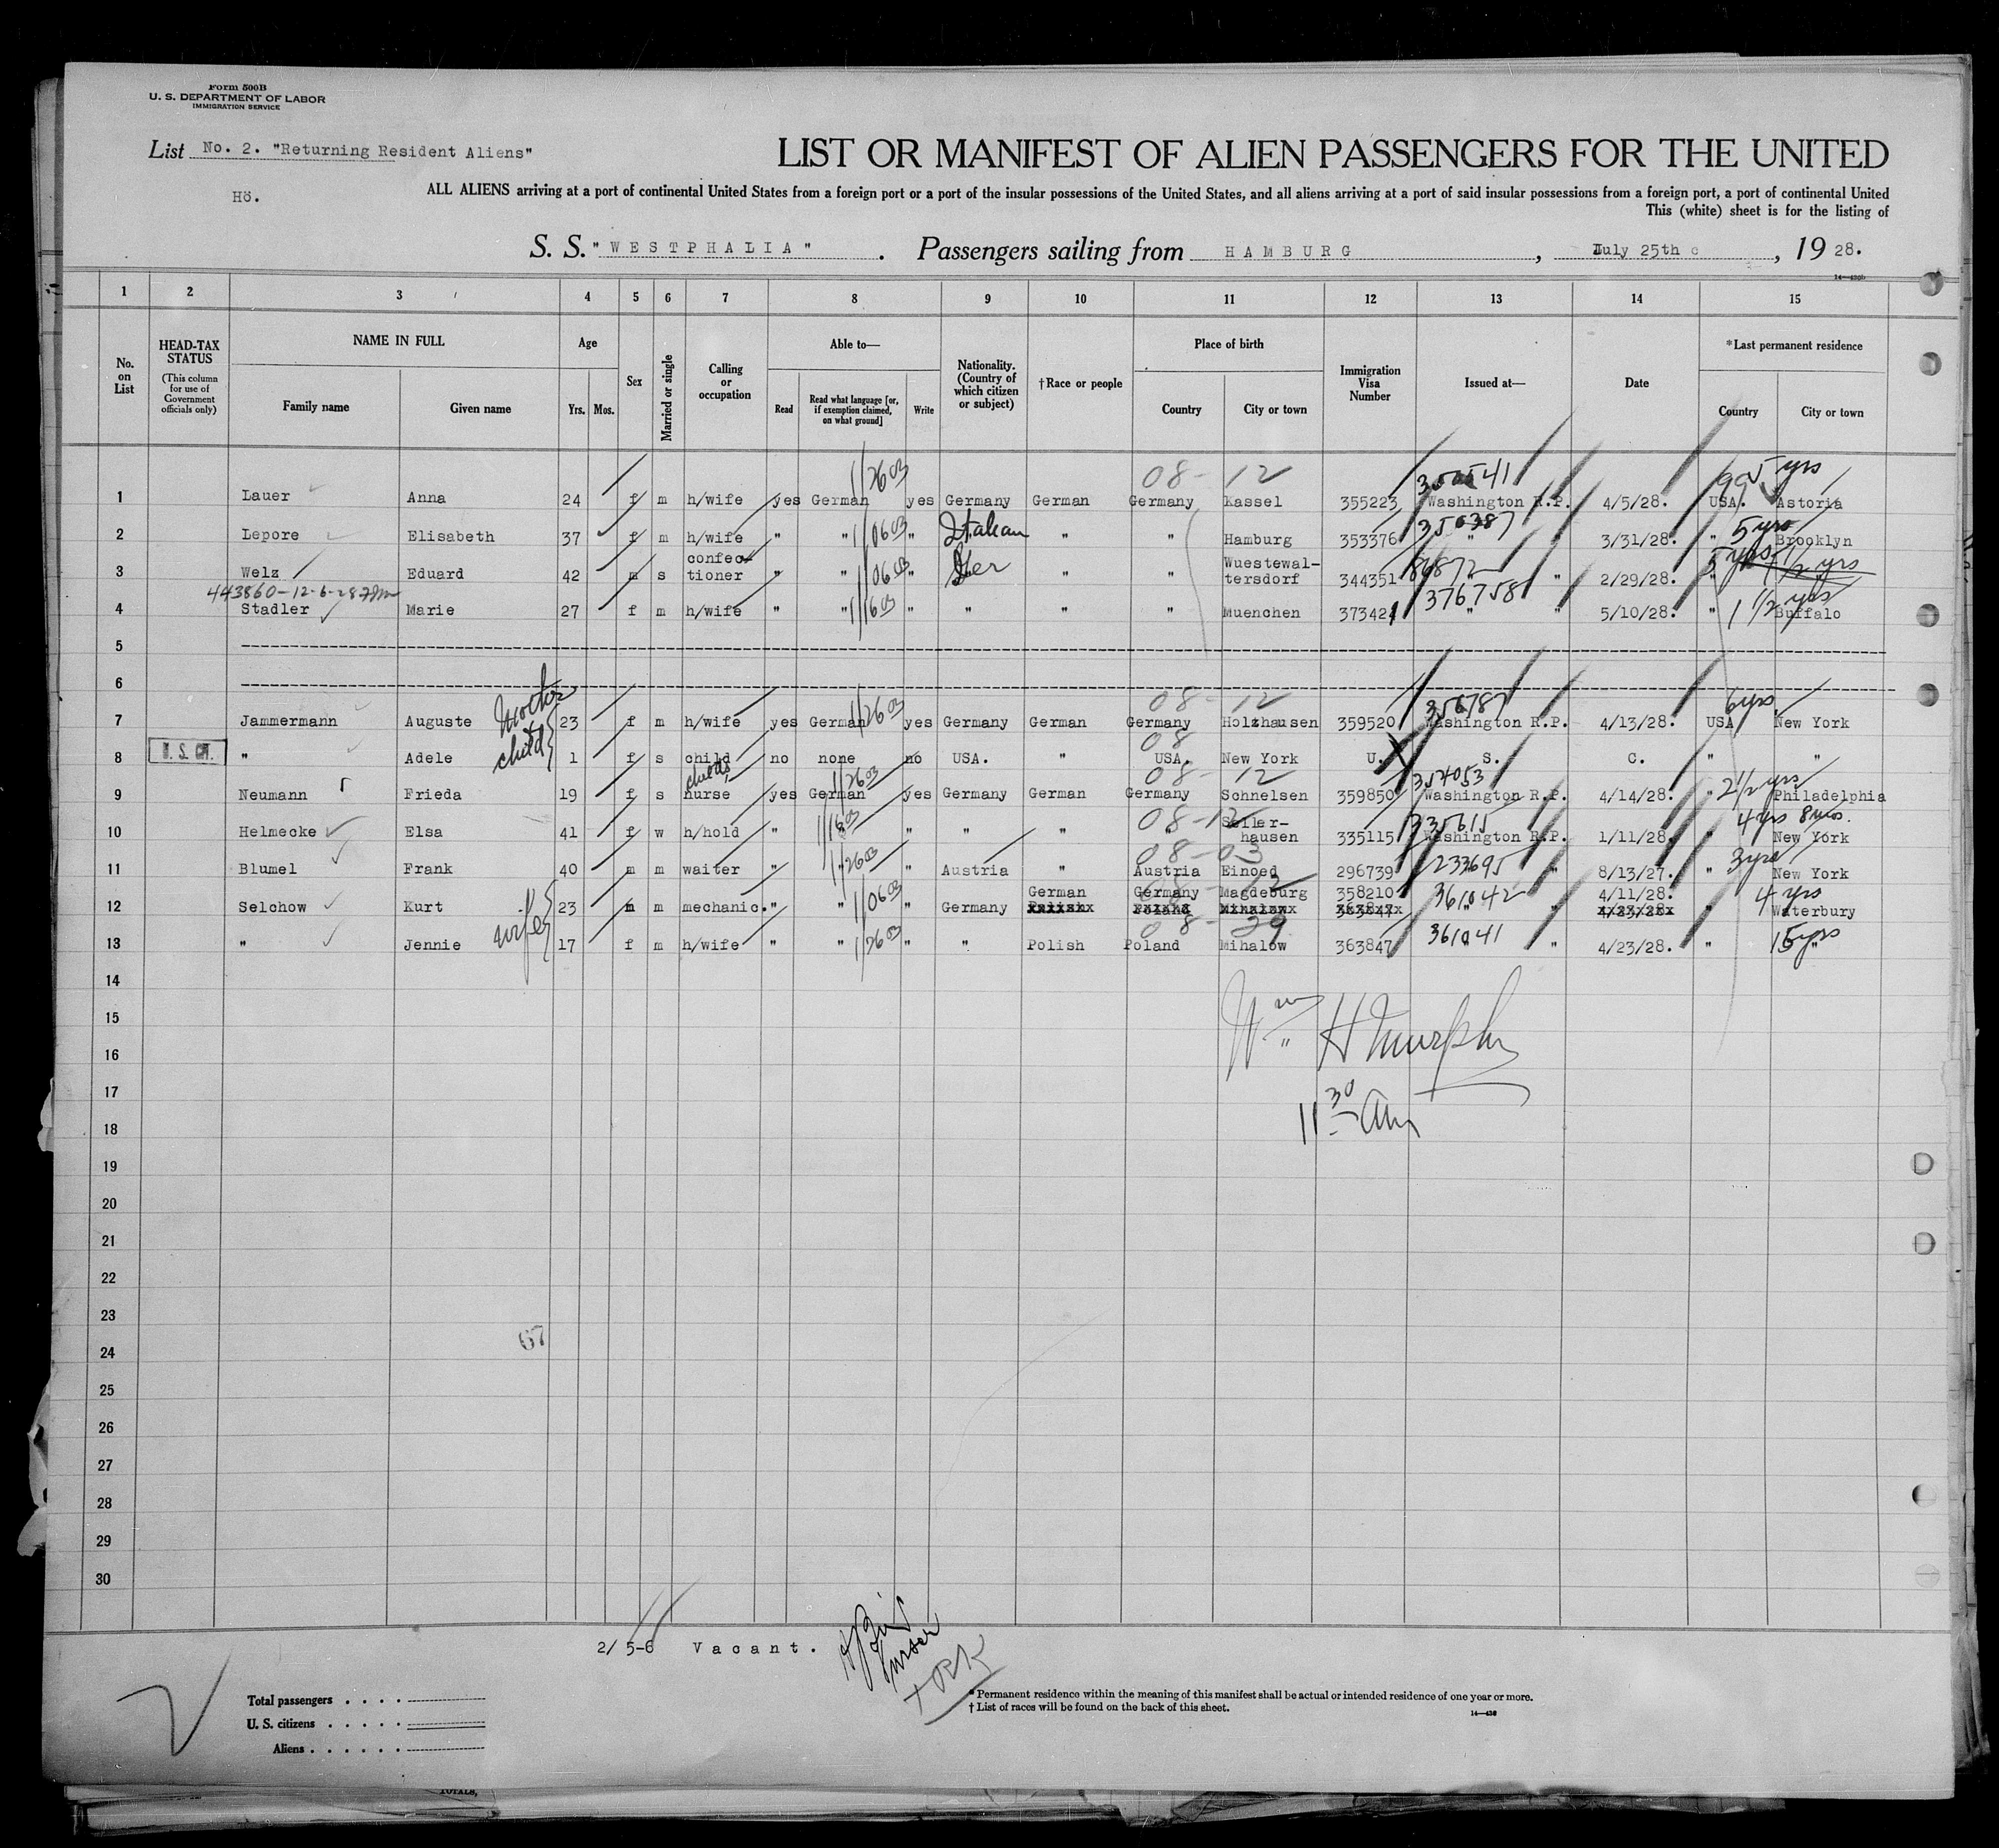 Form 500B
U. S. DEPARTMENT OF LABOR
IMMIGRATION SERVICE
List No. 2. "Returning Resident Aliens"
LIST OR MANIFEST OF ALIEN PASSENGERS FOR THE UNITED
Hö.
ALL ALIENS arriving at a port of continental United States from a foreign port or a port of the insular possessions of the United States, and all aliens arriving at a port of said insular possessions from a foreign port, a port of continental United
This (white) sheet is for the listing of
S. S. "WESTPHALIA". Passengers sailing from HAMBURG, July 25th, 1928.
1 2 3 4 5 6 7 8 9 10 11 12 13 14 15
No. on List
HEAD-TAX STATUS (This column for use of Government officials only)
NAME IN FULL
Family name Given name
Age
Yrs. Mos.
Sex
Married or single
Calling or occupation
Able to—
Read Read what language [or, if exemption claimed, on what ground] Write
Nationality. (Country of which citizen or subject)
†Race or people
Place of birth
Country City or town
Immigration Visa Number
Issued at—
Date
*Last permanent residence
Country City or town
08-12 350541 99 5 yrs
1 Lauer Anna 24 f m h/wife yes German yes Germany German Germany Kassel 355223 Washington R.P. 4/5/28. USA. Astoria
350387 5 yrs
2 Lepore Elisabeth 37 f m h/wife " " " Italian " " Hamburg 353376 " " 3/31/28. " Brooklyn
3 Welz Eduard 42 m s confectioner " " " Ger " " Wuestewaltersdorf 344351 " " 2/29/28. " "
443860-12-6-28
376758 1 1/2 yrs
4 Stadler Marie 27 f m h/wife " " " " " " Muenchen 373424 " " 5/10/28. " Buffalo
5
6
Mother 08-12 6 yrs
7 Jammermann Auguste 23 f m h/wife yes German yes Germany German Germany Holzhausen 359520 Washington R.P. 4/13/28. USA New York
child 08
8 U. S. CIT. " Adele 1 f s child no none no USA. " USA. New York U. S. C. " "
childs 08-12 2 1/2 yrs
9 Neumann Frieda 19 f s nurse yes German yes Germany German Germany Schnelsen 359850 Washington R.P. 4/14/28. " Philadelphia
08-12 335615 4 yrs 8 mos.
10 Helmecke Elsa 41 f w h/hold " " " " " " hausen 335115 Washington R.P. 1/11/28. " New York
08-03 233695 3 yrs
11 Blumel Frank 40 m m waiter " " " Austria " Austria Einoed 296739 " 8/13/27. " New York
361042 4 yrs
12 Selchow Kurt 23 m m mechanic. " " " Germany German Germany Magdeburg 358210 " " 4/11/28. " Waterbury
Polish Poland Mihalow 363847 4/23/28.
wife 08-39 361041 15 yrs
13 " Jennie 17 f m h/wife " " " " Polish Poland Mihalow 363847 " " 4/23/28. " "
14
15
Wm H Murphy
16
17
11 30 am
18
19
20
21
22
23
67
24
25
26
27
28
29
30
2/ 5-6 Vacant.
Total passengers
U. S. citizens
Aliens
* Permanent residence within the meaning of this manifest shall be actual or intended residence of one year or more.
† List of races will be found on the back of this sheet.